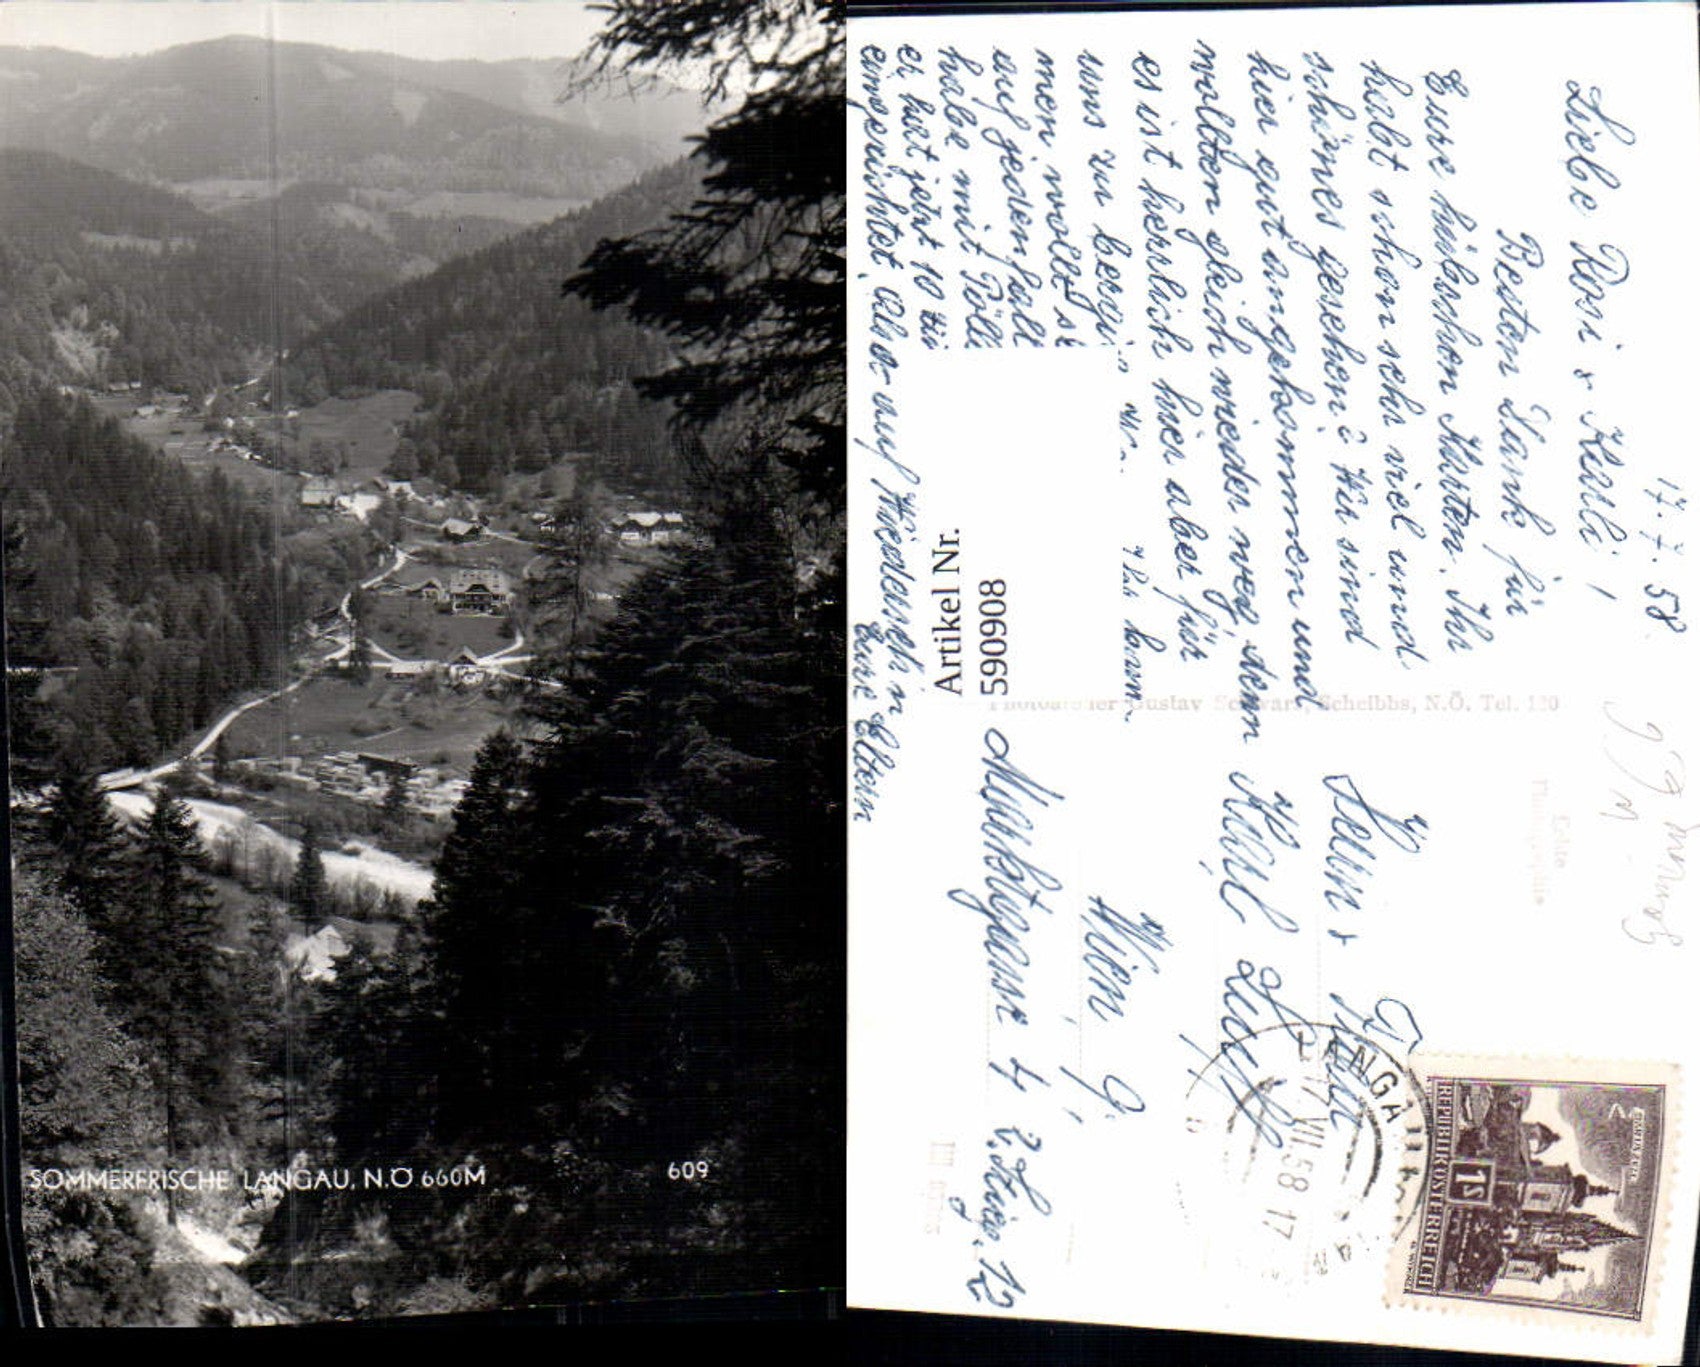 SOMMERFRISCHE LANGAU, N.Ö 660M
609
17.7.58.
Liebe Rosi & Karli!
Besten Dank für
Eure hübschen Karten. Ihr
habt schon sehr viel und
schönes gesehen? Wir sind
hier gut angekommen und
wollten gleich wieder weg, denn
es ist herrlich hier aber für
uns zu bergi
men wollt
auf jeden fall
habe mit Pölle
er hat jetzt 10
eingerichtet. Also auf Wiederseh'n
Eure Eltern
Artikel Nr.
590908
Photoatelier Gustav Schwarz, Scheibbs, N.Ö. Tel. 120
Echte
Photographie
Herrn & Frau
Karl
Wien
Marktgasse 4 2. Stiege, 12
LANGAU
17.VII.58 17
REPUBLIK ÖSTERREICH
1S
MARIAZELL